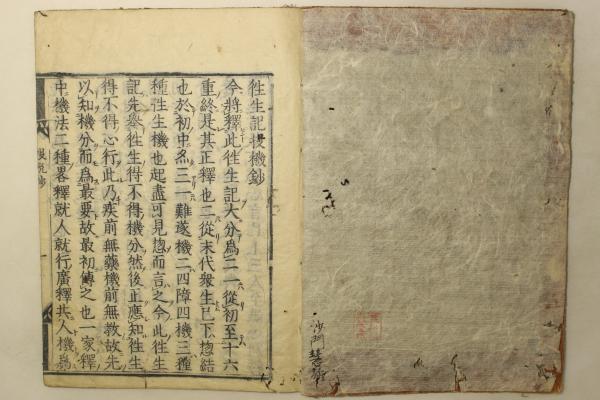 徃生記投機鈔
今將釋此徃生記大分爲二一從初至十六
重終是其正釋也二從末代衆生已下惣結
也於初中亦三一難遂機二四障四機三種
種徃生機也起盡可見惣而言之今此徃生
記先擧徃生得不得機分然後正應知徃生
得不得心行此乃疾前無藥機前無教故先
以知機分而爲最要故最初傳之也一家釋
中機法二種畧釋就人就行廣釋共人機爲
沙門